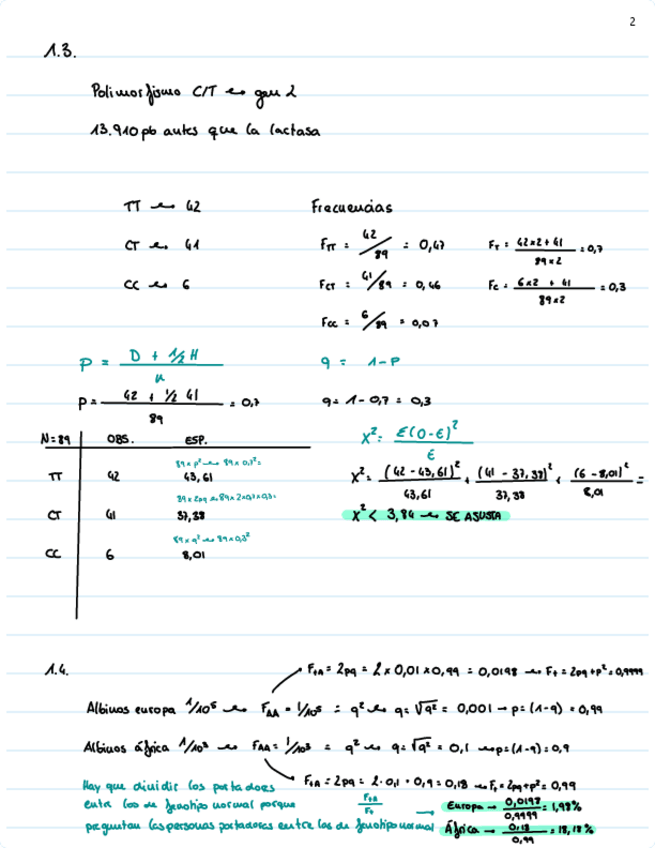 2
1.3.
Polimorfismo C/T en gen 2
13.910 pb antes que la lactasa
TT 42
CT 41
CC 6
Frecuencias
FTT = 42/89 = 0,47
FCT = 41/89 = 0,46
FCC = 6/89 = 0,07
FT = 42x2 + 41 / 89x2 = 0,7
FC = 6x2 + 41 / 89x2 = 0,3
P = D + 1/2 H / n
q = 1-P
P = 42 + 1/2 41 / 89 = 0,7
q = 1-0,7 = 0,3
N=89 OBS. ESP.
89 x p² 89 x 0,7² =
TT 42 43,61
89 x 2pq 89 x 2x0,7x0,3 =
CT 41 37,38
89 x q² 89 x 0,3²
CC 6 8,01
X² = Σ(O-E)² / E
X² = (42-43,61)² / 43,61 + (41-37,38)² / 37,38 + (6-8,01)² / 8,01 =
X² < 3,84 SE AJUSTA
1.4.
F+A = 2pq = 2 x 0,01 x 0,99 = 0,0198 F+ = 2pq + p² = 0,9999
Albinos europa 1/10⁵ FAA = 1/10⁵ = q² q = √q² = 0,001 → p = (1-q) = 0,99
Albinos áfrica 1/10³ FAA = 1/10³ = q² q = √q² = 0,1 p = (1-q) = 0,9
F+A = 2pq = 2·0,1·0,9 = 0,18 F+ = 2pq + p² = 0,99
Hay que dividir los portadores
entre los de fenotipo normal porque
preguntan las personas portadoras entre los de fenotipo normal
F+A / F+ →
Europa → 0,0198 / 0,9999 = 1,98%
África → 0,18 / 0,99 = 18,18%